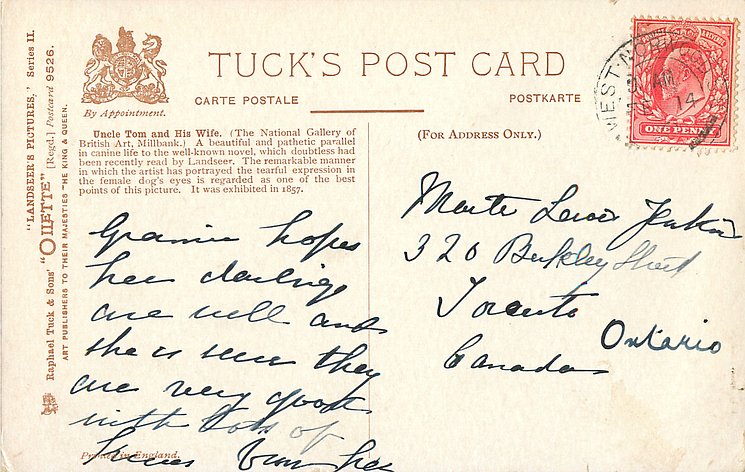 "LANDSEER'S PICTURES," Series II.
Raphael Tuck & Sons' "OILETTE" [Regd.] Postcard 9526.
ART PUBLISHERS TO THEIR MAJESTIES THE KING & QUEEN.
By Appointment.
TUCK'S POST CARD
CARTE POSTALE
POSTKARTE
Uncle Tom and His Wife. (The National Gallery of
British Art, Millbank.) A beautiful and pathetic parallel
in canine life to the well-known novel, which doubtless had
been recently read by Landseer. The remarkable manner
in which the artist has portrayed the tearful expression in
the female dog's eyes is regarded as one of the best
points of this picture. It was exhibited in 1857.
Grannie hopes
her darlings
are well and
she is sure they
are very good
with lots of
from her
Printed in England.
(FOR ADDRESS ONLY.)
WEST NORWOOD
AM
14
ONE PENNY
Jenkins
320 Berkley Street
Toronto
Ontario
Canada